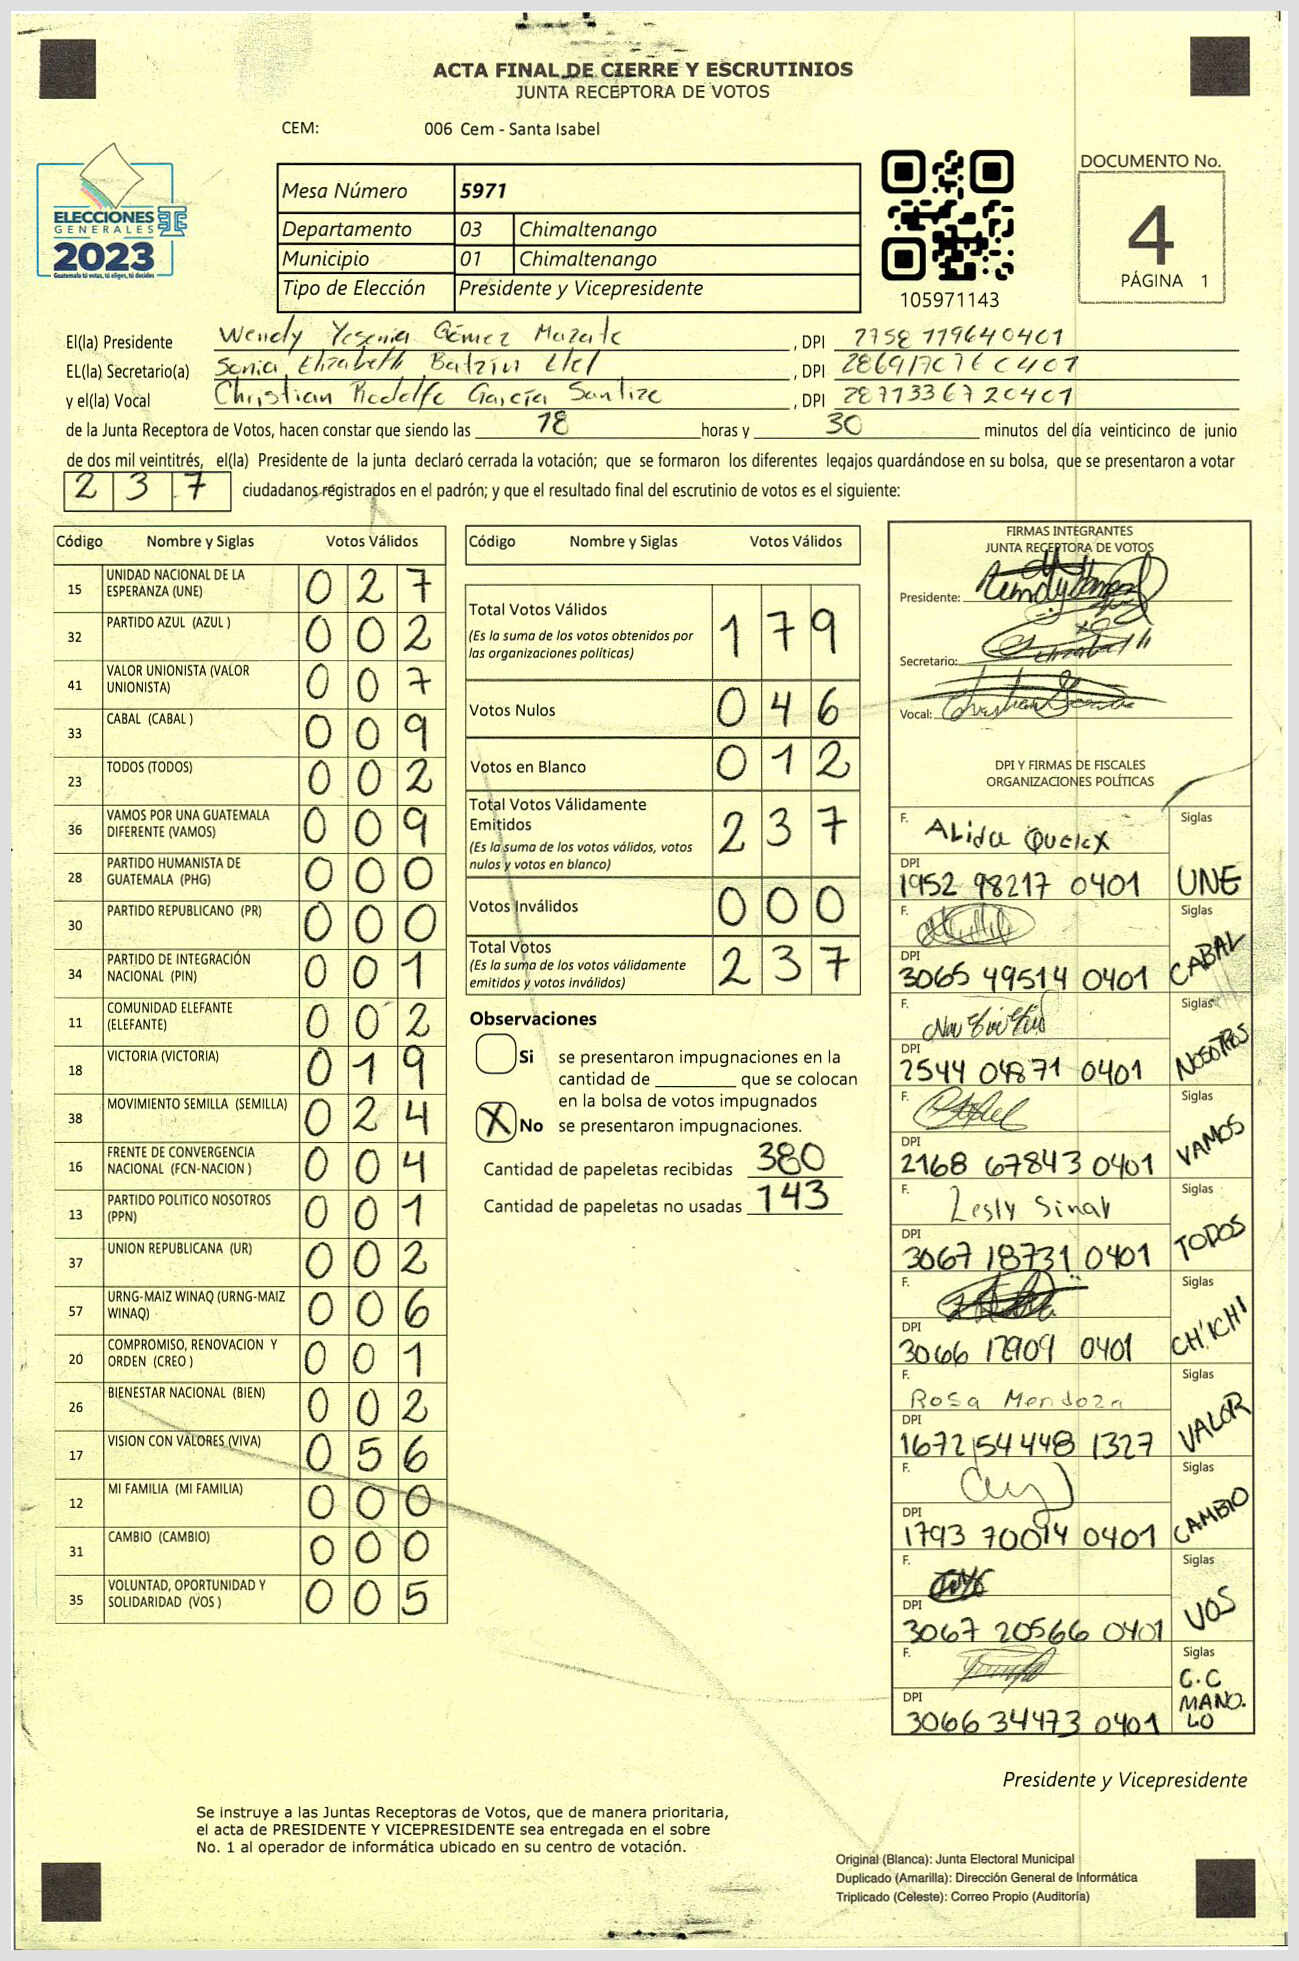 ACTA FINAL DE CIERRE Y ESCRUTINIOS
JUNTA RECEPTORA DE VOTOS
CEM: 006 Cem - Santa Isabel
ELECCIONES
GENERALES
2023
Guatemala tú votas, tú eliges, tú decides
Mesa Número 5971
Departamento 03 Chimaltenango
Municipio 01 Chimaltenango
Tipo de Elección Presidente y Vicepresidente
105971143
DOCUMENTO No.
4
PÁGINA 1
El(la) Presidente Wendy Yesenia Gómez Mazate, DPI 2758 119640401
EL(la) Secretario(a) Sonia Elizabeth Batzín, DPI 2869170760401
y el(la) Vocal Christian Rodolfo García Santizo, DPI 2871336720401
de la Junta Receptora de Votos, hacen constar que siendo las 18 horas y 30 minutos del día veinticinco de junio
de dos mil veintitrés, el(la) Presidente de la junta declaró cerrada la votación; que se formaron los diferentes legajos guardándose en su bolsa, que se presentaron a votar
237 ciudadanos registrados en el padrón; y que el resultado final del escrutinio de votos es el siguiente:
Código Nombre y Siglas Votos Válidos
15 UNIDAD NACIONAL DE LA ESPERANZA (UNE) 027
32 PARTIDO AZUL (AZUL ) 002
41 VALOR UNIONISTA (VALOR UNIONISTA) 007
33 CABAL (CABAL ) 009
23 TODOS (TODOS) 002
36 VAMOS POR UNA GUATEMALA DIFERENTE (VAMOS) 009
28 PARTIDO HUMANISTA DE GUATEMALA (PHG) 000
30 PARTIDO REPUBLICANO (PR) 000
34 PARTIDO DE INTEGRACIÓN NACIONAL (PIN) 001
11 COMUNIDAD ELEFANTE (ELEFANTE) 002
18 VICTORIA (VICTORIA) 019
38 MOVIMIENTO SEMILLA (SEMILLA) 024
16 FRENTE DE CONVERGENCIA NACIONAL (FCN-NACION ) 004
13 PARTIDO POLITICO NOSOTROS (PPN) 001
37 UNION REPUBLICANA (UR) 002
57 URNG-MAIZ WINAQ (URNG-MAIZ WINAQ) 006
20 COMPROMISO, RENOVACION Y ORDEN (CREO ) 001
26 BIENESTAR NACIONAL (BIEN) 002
17 VISION CON VALORES (VIVA) 056
12 MI FAMILIA (MI FAMILIA) 000
31 CAMBIO (CAMBIO) 000
35 VOLUNTAD, OPORTUNIDAD Y SOLIDARIDAD (VOS ) 005
Código Nombre y Siglas Votos Válidos
Total Votos Válidos 179
(Es la suma de los votos obtenidos por
las organizaciones políticas)
Votos Nulos 046
Votos en Blanco 012
Total Votos Válidamente
Emitidos 237
(Es la suma de los votos válidos, votos
nulos y votos en blanco)
Votos Inválidos 000
Total Votos 237
(Es la suma de los votos válidamente
emitidos y votos inválidos)
Observaciones
Si se presentaron impugnaciones en la
cantidad de ________ que se colocan
en la bolsa de votos impugnados
X No se presentaron impugnaciones.
Cantidad de papeletas recibidas 380
Cantidad de papeletas no usadas 143
FIRMAS INTEGRANTES
JUNTA RECEPTORA DE VOTOS
Presidente:
Secretario:
Vocal:
DPI Y FIRMAS DE FISCALES
ORGANIZACIONES POLÍTICAS
F. Alida Quelex Siglas
DPI 1952 98217 0401 UNE
F. Siglas
DPI 3065 49514 0401 CABAL
F. Siglas
DPI 2544 04871 0401 NOSOTROS
F. Siglas
DPI 2168 67843 0401 VAMOS
F. Lesly Sinay Siglas
DPI 3067 18731 0401 TODOS
F. Siglas
DPI 3066 17909 0401 CH'ICHI
F. Rosa Mendoza Siglas
DPI 1672 54448 1327 VALOR
F. Siglas
DPI 1793 70014 0401 CAMBIO
F. Siglas
DPI 3067 20566 0401 VOS
F. Siglas
DPI 3066 34473 0401 C.C MANO.LO
Presidente y Vicepresidente
Se instruye a las Juntas Receptoras de Votos, que de manera prioritaria,
el acta de PRESIDENTE Y VICEPRESIDENTE sea entregada en el sobre
No. 1 al operador de informática ubicado en su centro de votación.
Original (Blanca): Junta Electoral Municipal
Duplicado (Amarilla): Dirección General de Informática
Triplicado (Celeste): Correo Propio (Auditoría)